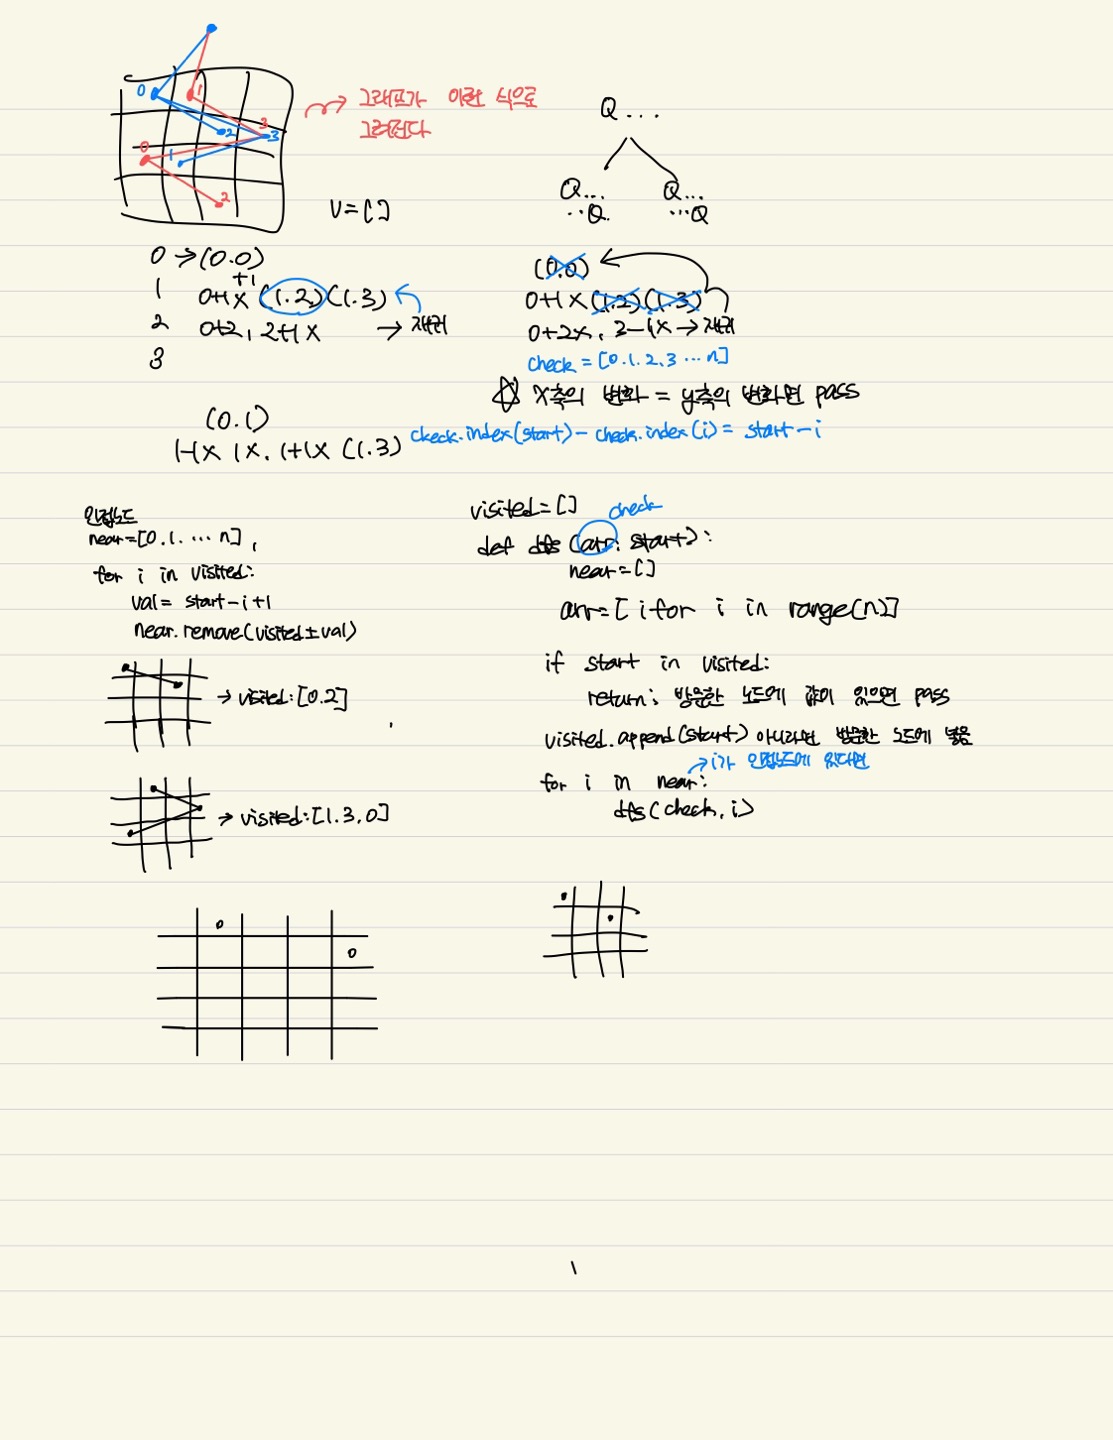 0
1
2
3
3
0
1
2
그래프가 이런 식으로
그려진다
Q...
Q...
..Q.
Q...
...Q
V=[]
0 → (0.0)
+1
1 0+1 x (1.2) (1.3)
2 0+2, 2+1 x → 재귀
3
(0.0)
0+1 x (1.2) (1.3)
0+2x, 3-1x → 재귀
check = [0.1.2.3 ... n]
☆ x축의 변화 = y축의 변화면 pass
check.index(start) - check.index(i) = start - i
(0.1)
1-1 x 1 x. 1+1 x (1.3)
인접노드
near=[0.1. ... n],
for i in visited:
val = start-i+1
near.remove(visited±val)
→ visited:[0.2]
→ visited:[1.3.0]
visited=[]
check
def dfs (arr, start):
near=[]
arr=[i for i in range(n)]
if start in visited:
return; 방문한 노드에 값이 있으면 pass
visited.append(start) 아니라면 방문한 노드에 넣음
→ i가 인접노드에 있다면
for i in near:
dfs(check, i)